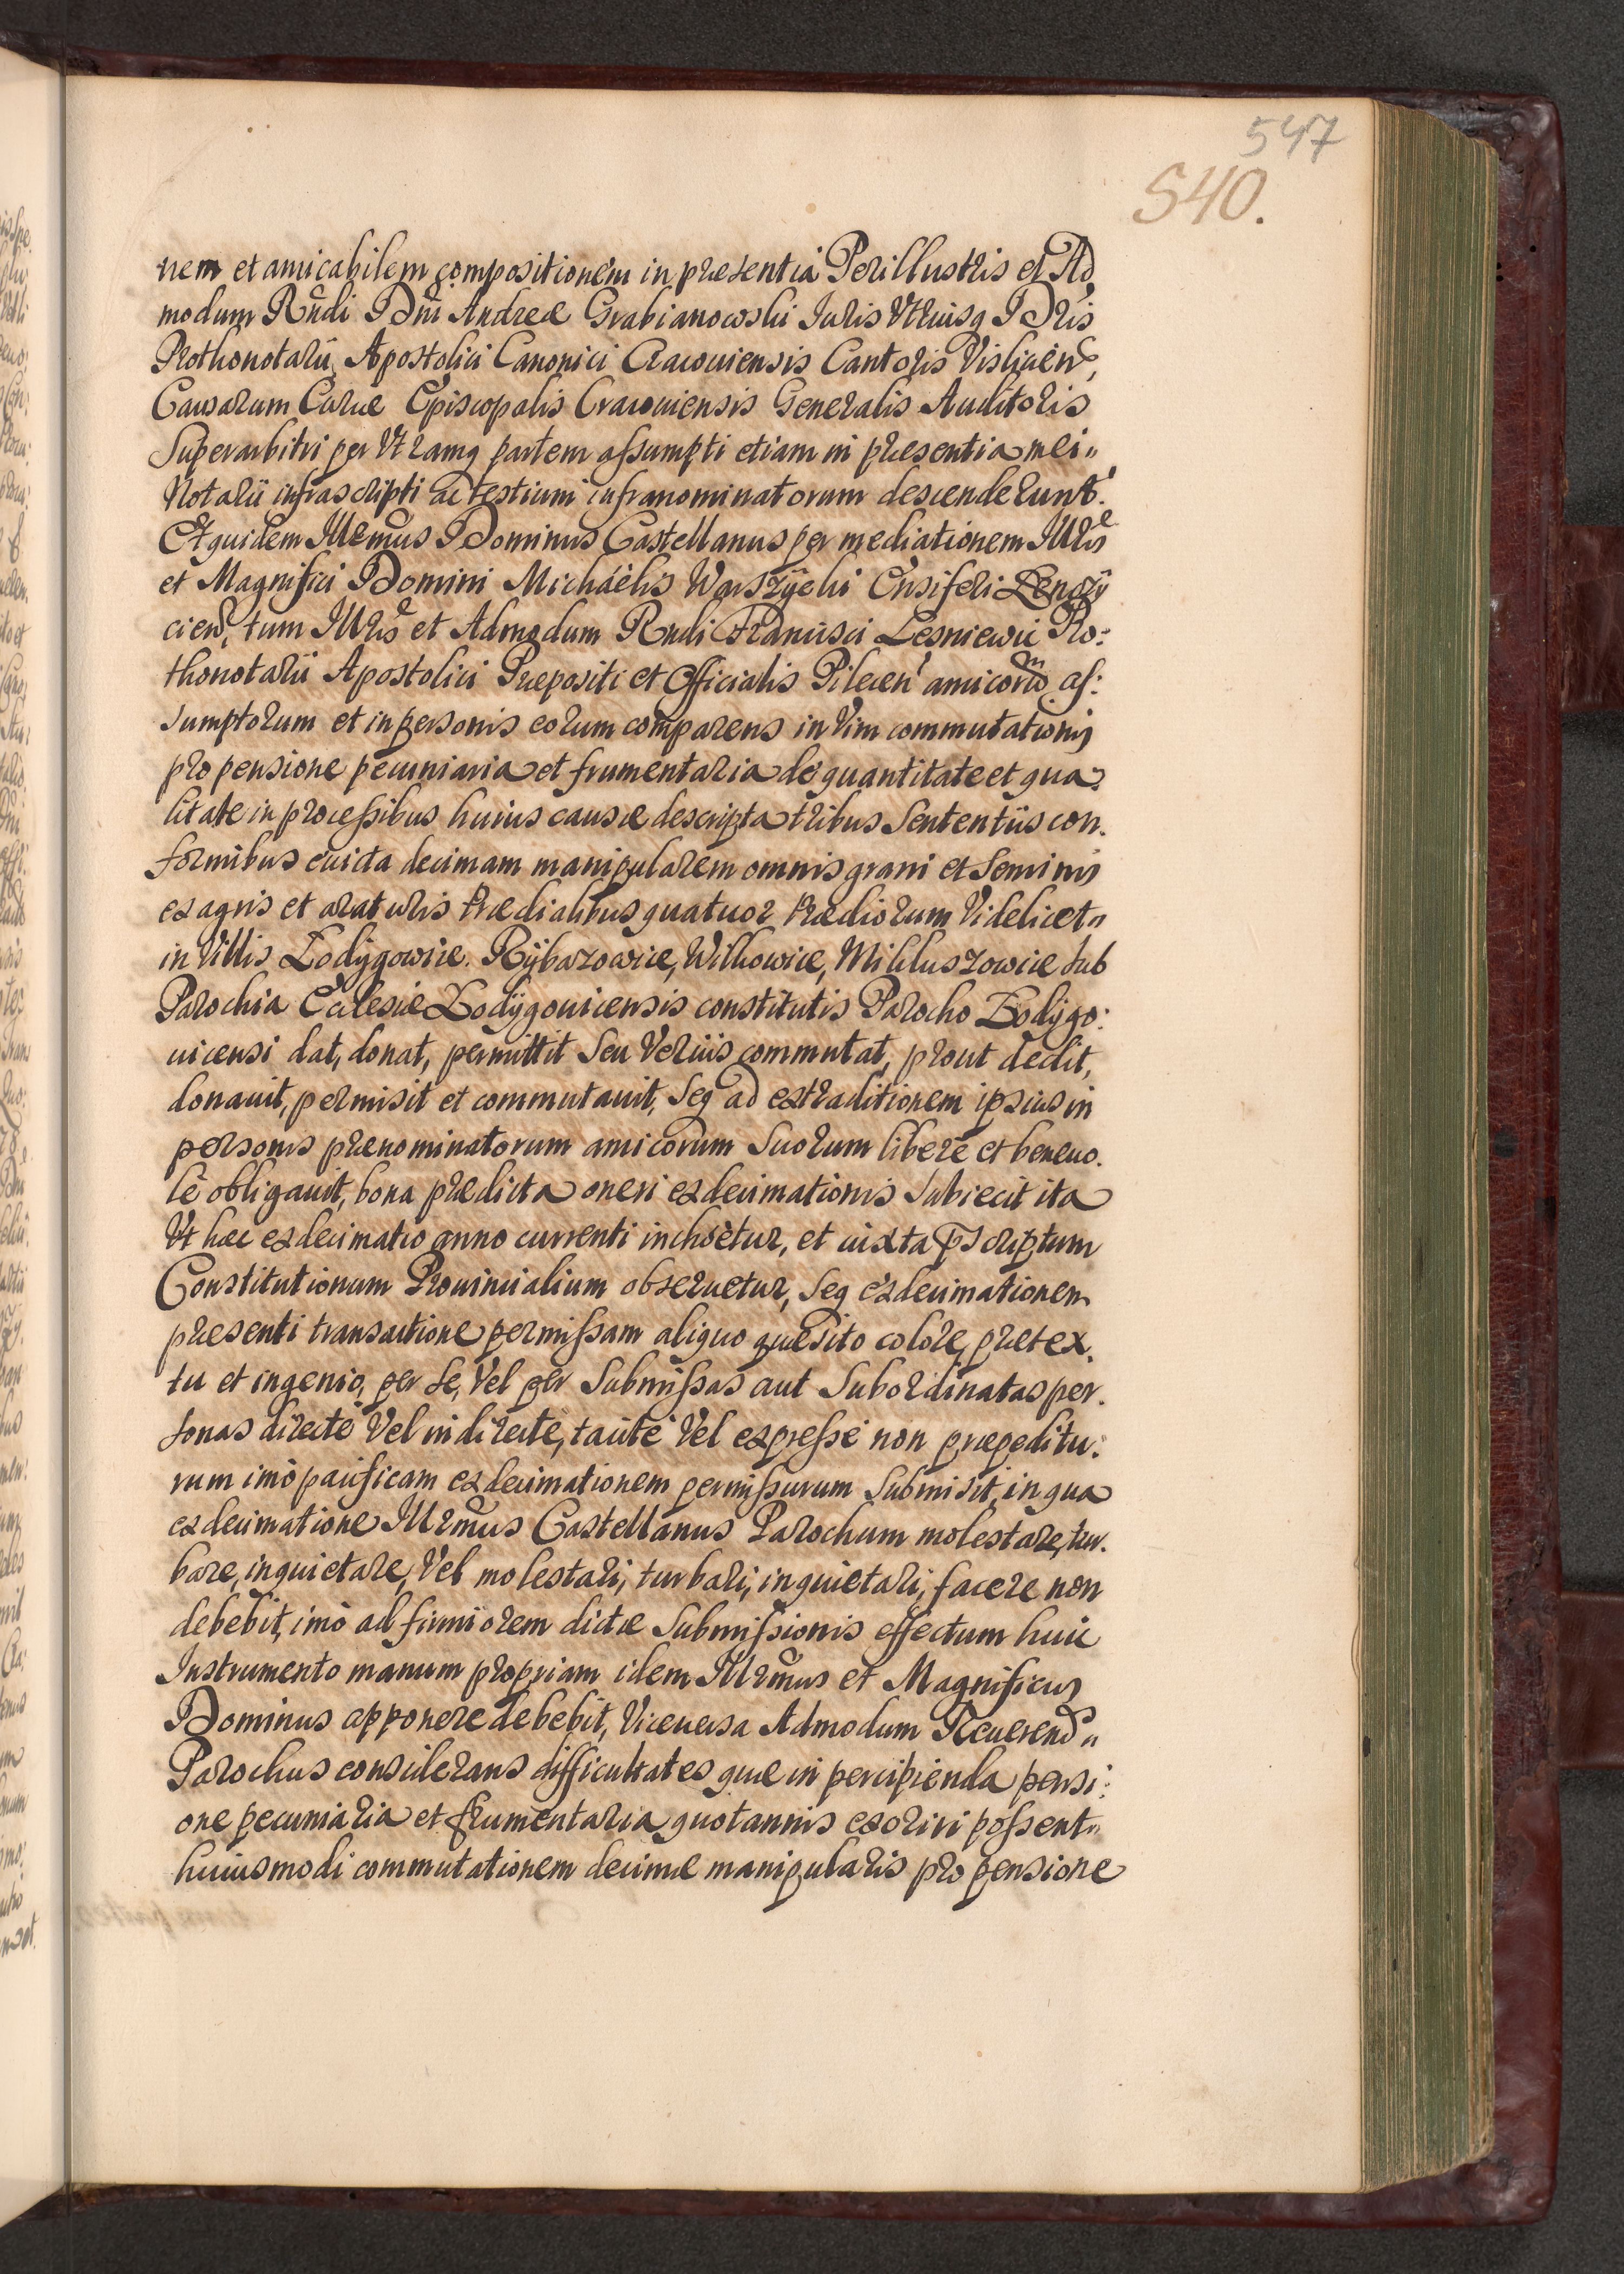 547
540.
nem et amicabilem compositionem in præsentia Perillustris et Ad
modum Rndi Dni Andreæ Grabianowski Iuris Vtriusq Dris
Prothonotarii Apostolici Canonici Cracouiensis Cantoris Vislicien,
Causarum Curiæ Episcopalis Cracouiensis Generalis Auditoris
Superarbitri per Vtramq partem assumpti etiam in præsentia mei„
Notarii infrascripti ac testium infranominatorum descenderunt.
Et quidem Illrmus Dominus Castellanus per mediationem Illris
et Magnifici Domini Michaëlis Warszÿcki Ensiferi Lenczÿ
cien, tum Illris et Admodum Rndi Francisci Lesniewic Pro:
thonotarii Apostolici Præpositi et Officialis Pilecen amicorum as:
sumptorum et in personis eorum comparens in Vim commutationis
pro pensione pecuniaria et frumentaria de quantitate et qua:
litate in processibus huius causæ descripta tribus Sententiis con.
formibus euicta decimam manipularem omnis grani et Seminis
ex agris et araturis Prædialibus quatuor Prædiorum Videlicet„
in Villis Łodÿgowice. Rÿbarzowice, Wilkowice, Mikluszowice sub
Parochia Ecclesiæ Łodÿgouicensis constitutis Parocho Łodÿgo:
uicensi dat, donat, permittit seu Veriùs commutat, prout dedit,
donauit, permisit et commutauit, Seq ad extraditionem ipsius in
personis prænominatorum amicorum Suorum liberè et beneuo.
lè obligauit, bona prædicta oneri exdecimationis Subiecit ita
Vt hæc exdecimatio anno currenti inchoètur, et iuxta Pscriptum
Constitutionum Prouincialium obseruetur, Seq exdecimationem
præsenti transactione permissam aliquo quæsito colore, prætex.
tu et ingenio, per se, Vel per Submissas aut Subordinatas per.
sonas directè Vel indirectè, tacitè Vel expressè non præpeditu:
rum imò pacificam exdecimationem permissurum Submisit, in qua
exdecimatione Illrmus Castellanus Parochum molestare, tur.
bare, inquietare, Vel molestari, turbari, inquietari, facere non
debebit, imò ad firmiorem dictæ Submissionis effectum huic
Instrumento manum propriam idem Illrmus et Magnificus
Dominus apponere debebit, Viceuersa Admodum Reuerend„
Parochus considerans difficultates quæ in percipienda pensi:
one pecuniaria et frumentaria quotannis exoriri possent„
huiusmodi commutationem decimæ manipularis pro pensione